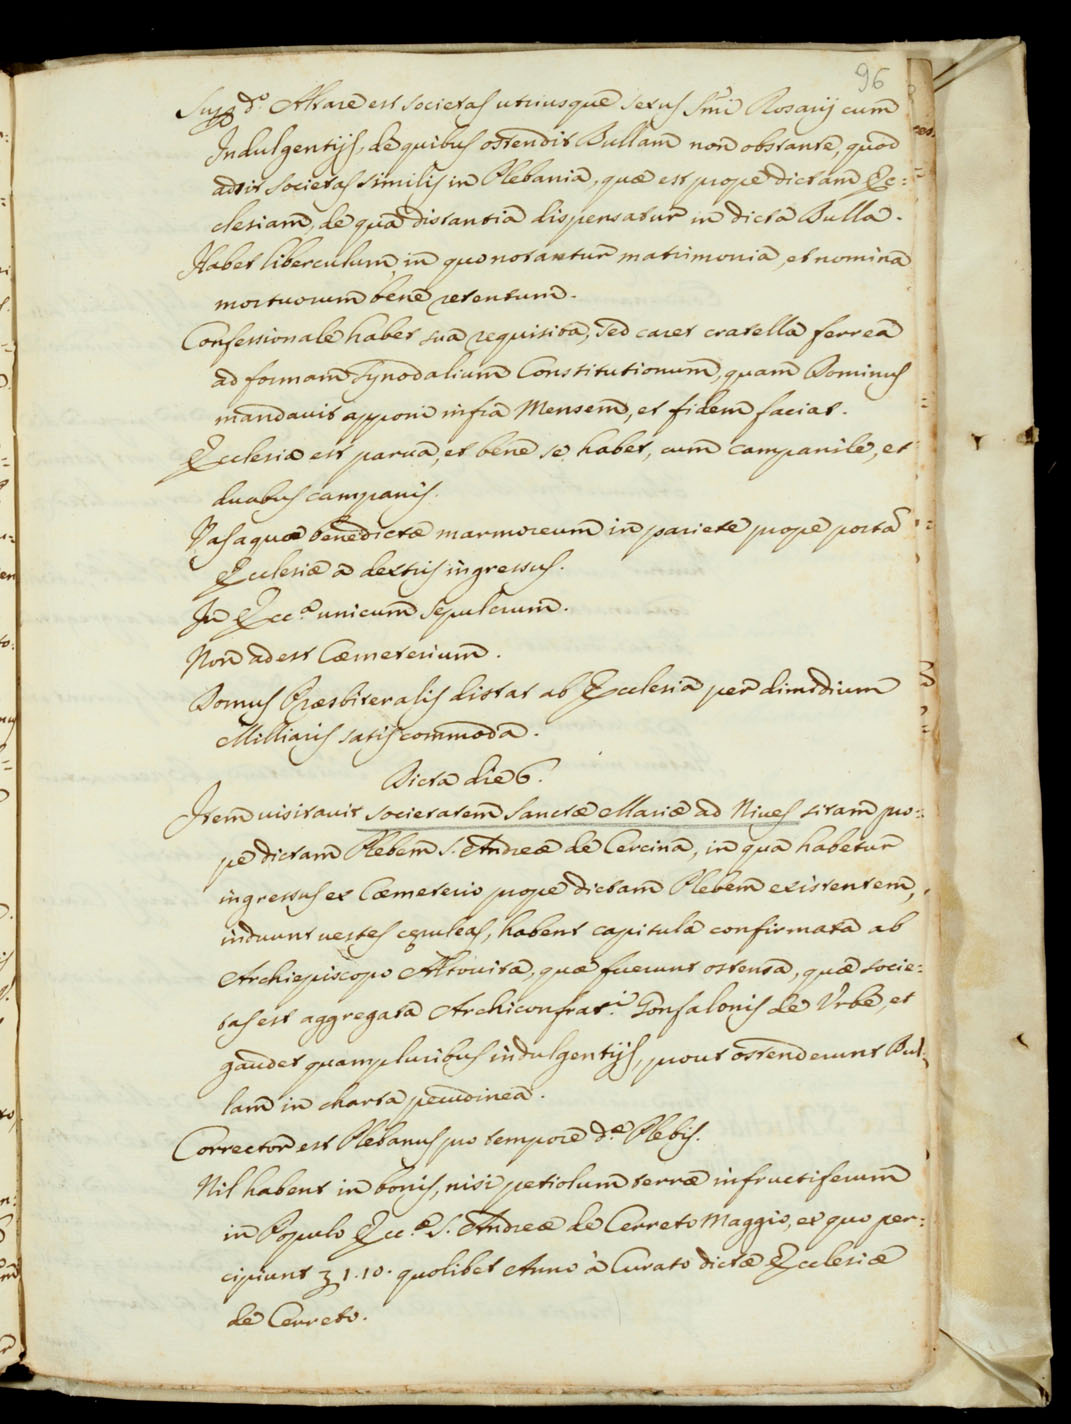 96
Supp d.º Altare est societas utriusque sexus S.mi Rosarij cum
Indulgentijs, de quibus ostendit Bullam non obstante, quod
adsit societas similis in Plebania, quæ est prope dictam Ec=
clesiam, de qua distantia dispensatur in dicta Bulla.
Habet liberculum, in quo notantur matrimonia, et nomina
mortuorum bene retentum.
Confessionale habet sua requisita, sed caret cratella ferrea
ad formam Synodalium Constitutionum, quam Dominus
mandavit apponi infra Mensem, et fidem faciat.
Ecclesia est parua, et bene se habet, cum campanile, et
duabus campanis.
Vas aquæ benedictæ marmoreum in pariete prope porta
Ecclesiæ a dextris ingressus.
In Ecc.ª unicum sepulcrum.
Non adest Cæmeterium.
Domus Præsbiteralis distat ab Ecclesia per dimidium
Milliaris satis commoda.
Dicta die 6.
Item visitavit societatem Sanctæ Mariæ ad Nives sitam pro=
pe dictam Plebem S. Andreæ de Cercina, in qua habetur
ingressus ex Cæmeterio prope dictam Plebem existentem,
induunt vestes cęruleas, habent capitula confirmata ab
Archiepiscopo Altovita, quæ fuerunt ostensa, quæ socie=
tas est aggregata Archiconfrat.i Gonfalonis de Vrbe, et
gaudet quampluribus indulgentijs, prout ostenderunt Bul
lam in charta pecudinea.
Corrector est Plebanus pro tempore d.æ Plebis.
Nil habent in bonis, nisi petiolum terræ infructiferum
in Populo Ecc.æ S. Andreæ de Cerreto Maggio, ex quo per=
cipiunt 1.10. quolibet Anno à Curato dictæ Ecclesiæ
de Cerreto.